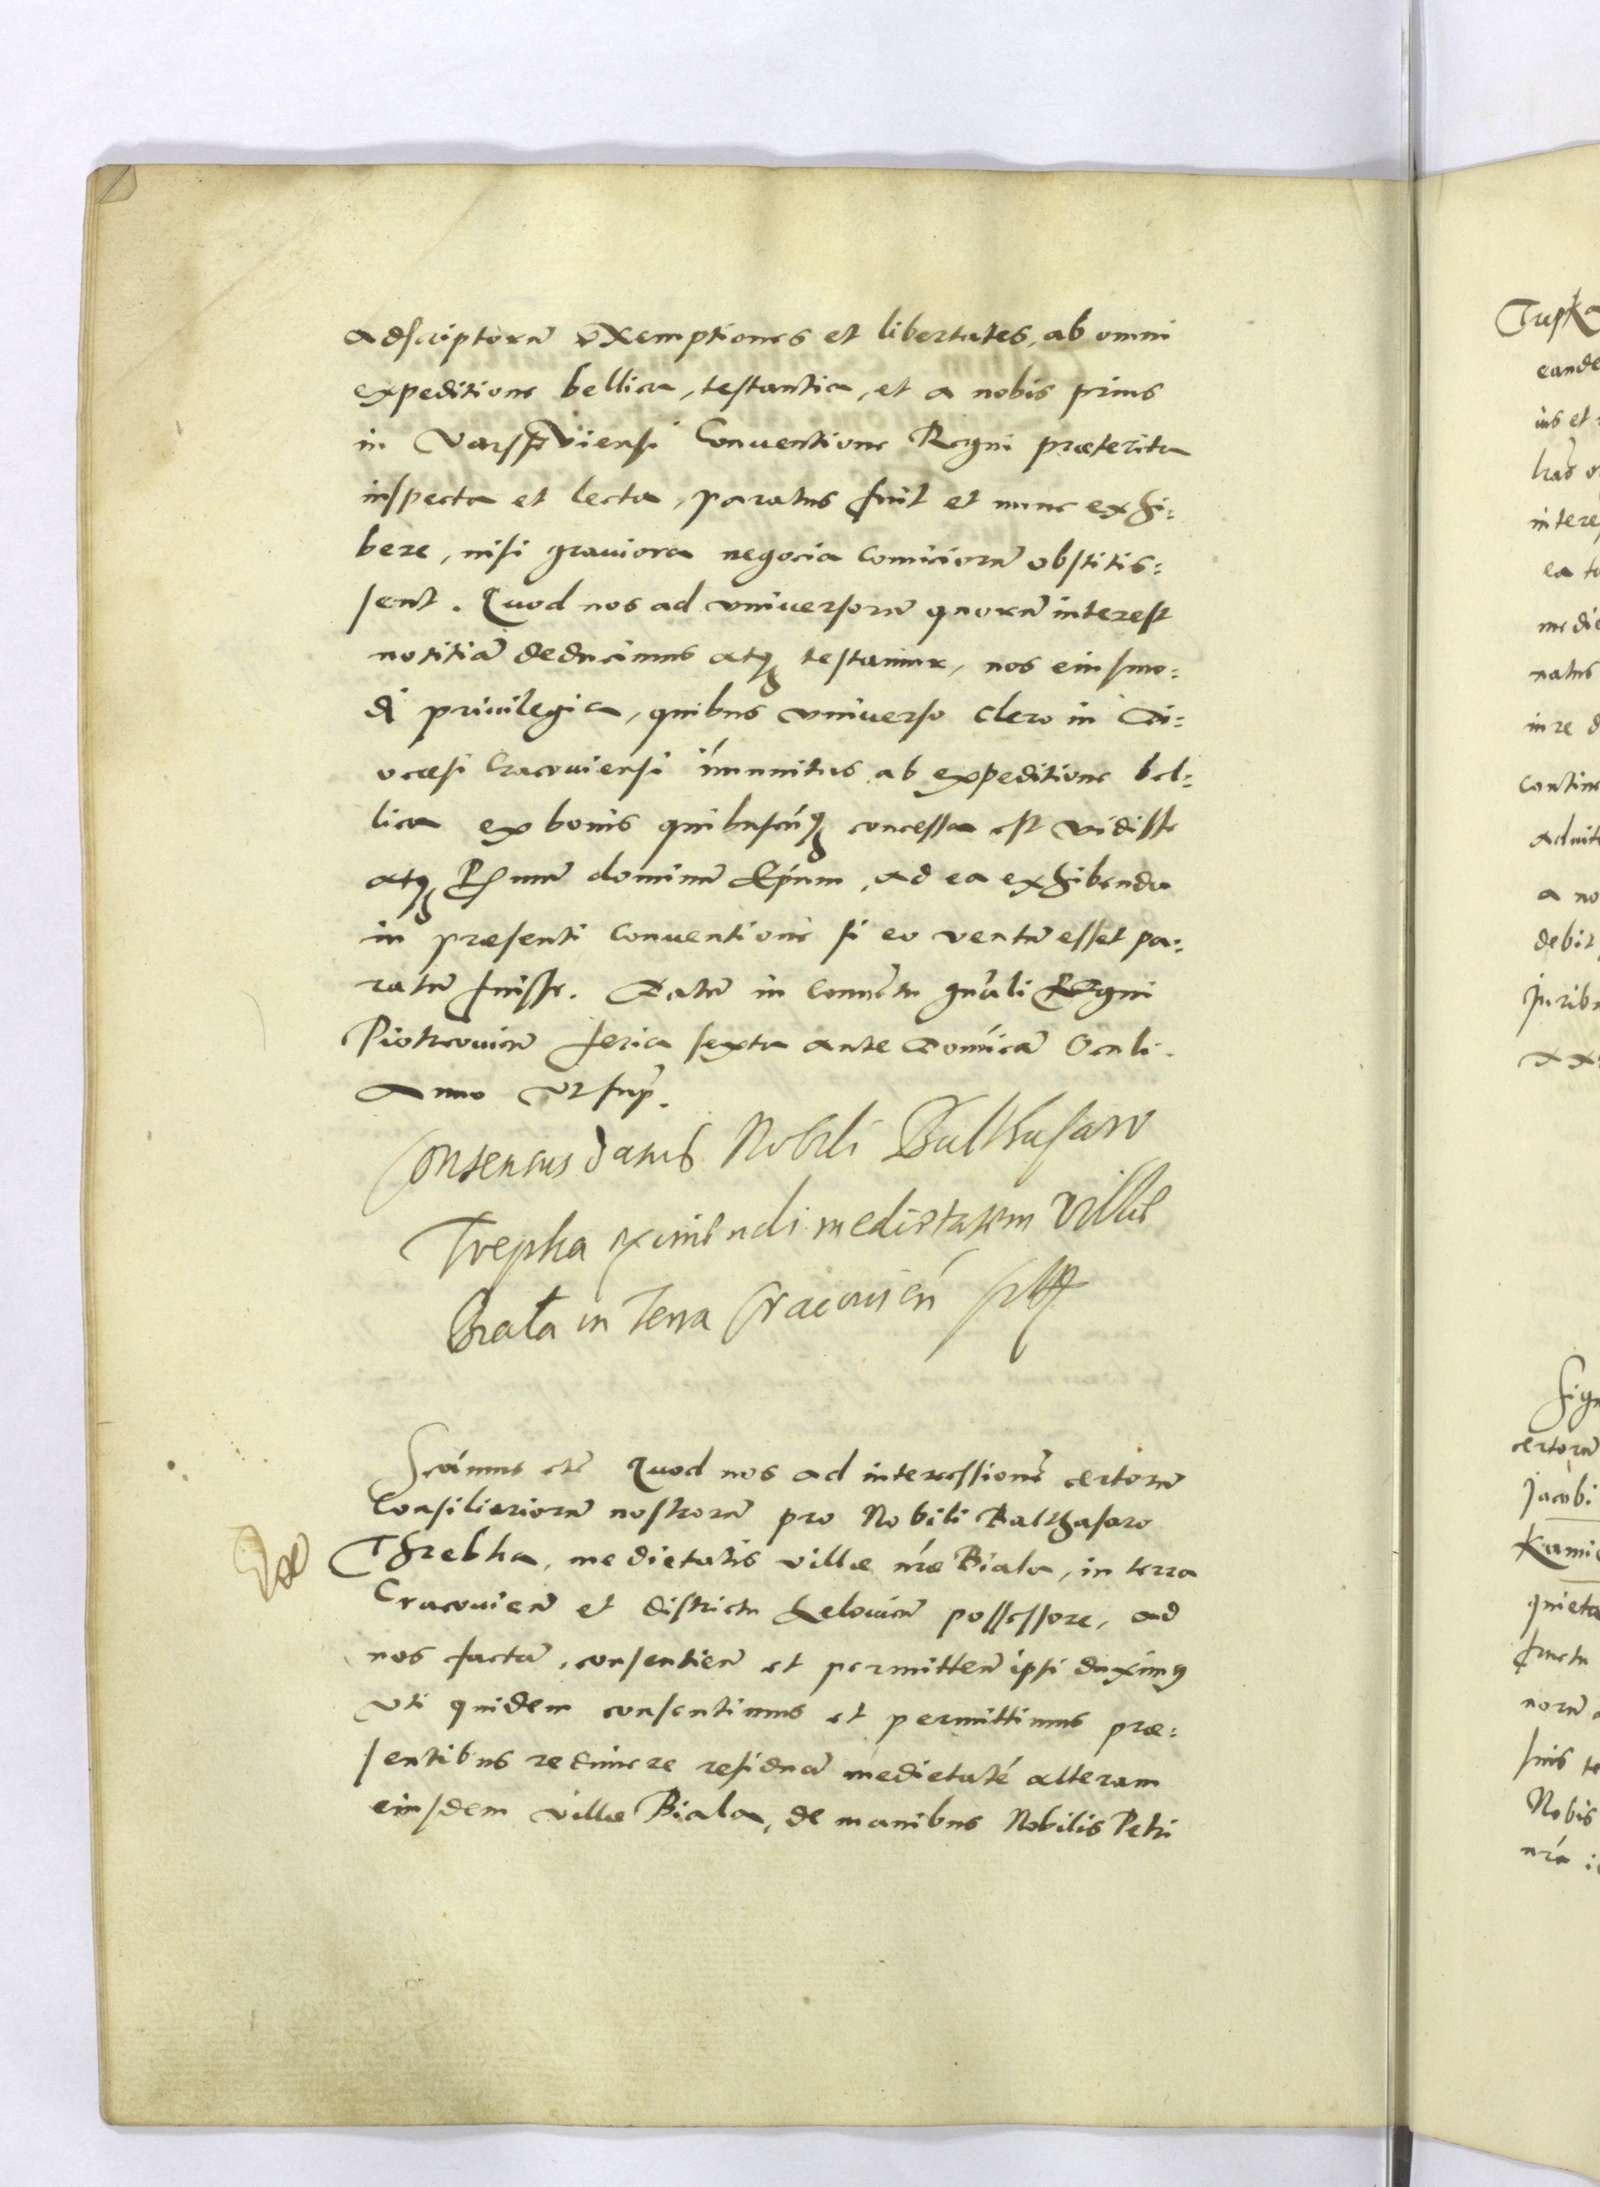 adscriptorũ exemptiones et libertates, ab omni
expeditione bellica, testantia, et a nobis prius
in Varschoviensi Conventione Regni præterita
inspecta et lecta, paratus fuit et nunc exhi:
bere, nisi graviora negocia comiciorũ obstitis:
sent. Quod nos ad universorũ quorũ interest
notitiã deducimus atq testamur, nos eiusmo:
di privilegia, quibus universo clero in Di:
ocæsi Cracoviensi imunitas ab expeditione bel:
lica ex bonis quibuscũq concessa est vidisse
atq Rsmum dominũ Epum, ad ea exhibenda
in præsenti conventione si eo ventũ esset pa:
ratũ fuisse. Datũ in Convẽtu gnãli Regni
Piotrcovieñ feria sexta ante Domicã Oculi.
Anno Ut sup.
Consensus datus Nobili Balthasaro
Trepka eximendi medietatem Villæ
Biała in Terra Cracovień
Scimus etc Quod nos ad intercessionẽ certorũ
Consiliariorũ nostrorũ pro Nobili Balthasaro
Threbka, medietatis villæ nræ Biala, in terra
Cracovieñ et districtu Leloviеñ possessore, ad
nos factã, consentieñ et permitteñ ipsi duximq
uti quidem consentimus et permittimus præ:
sentibus redimere residuã medietatẽ alteram
eiusdem villæ Biala, de manibus Nobilis Petri
Cantine
a no
debit
Jacobi
Nobis